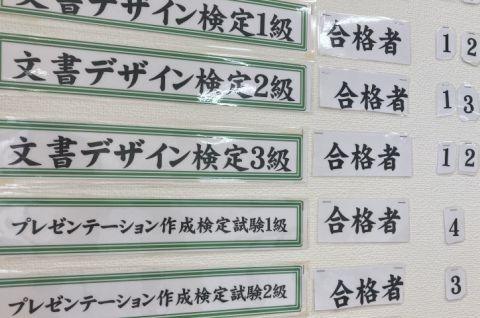 文書デザイン検定1級 合格者 12
文書デザイン検定2級 合格者 13
文書デザイン検定3級 合格者 12
プレゼンテーション作成検定試験1級 合格者 4
プレゼンテーション作成検定試験2級 合格者 3